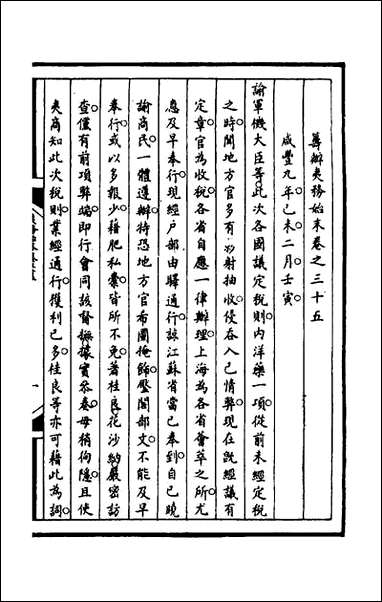 籌辦夷務始末卷之三十五
咸豐九年己未二月壬寅
諭軍機大臣等此次各國議定稅則內洋藥一項從前未經定稅
之時聞地方官多有影射抽收侵吞入己情弊現在既經議有
定章官為收稅各省自應一律辦理上海為各省薈萃之所尤
應及早奉行現經戶部由驛通行諒江蘇省當已奉到自已曉
諭商民一體遵辦特恐地方官希圖掩飾壓閣部文不能及早
奉行或以多報少藉肥私橐皆所不免著桂良花沙納嚴密訪
查儻有前項弊端即行會同該督撫據實參奏毋稍徇隱且使
夷商知此次稅則業經通行獲利已多桂良等亦可藉此為詞
一